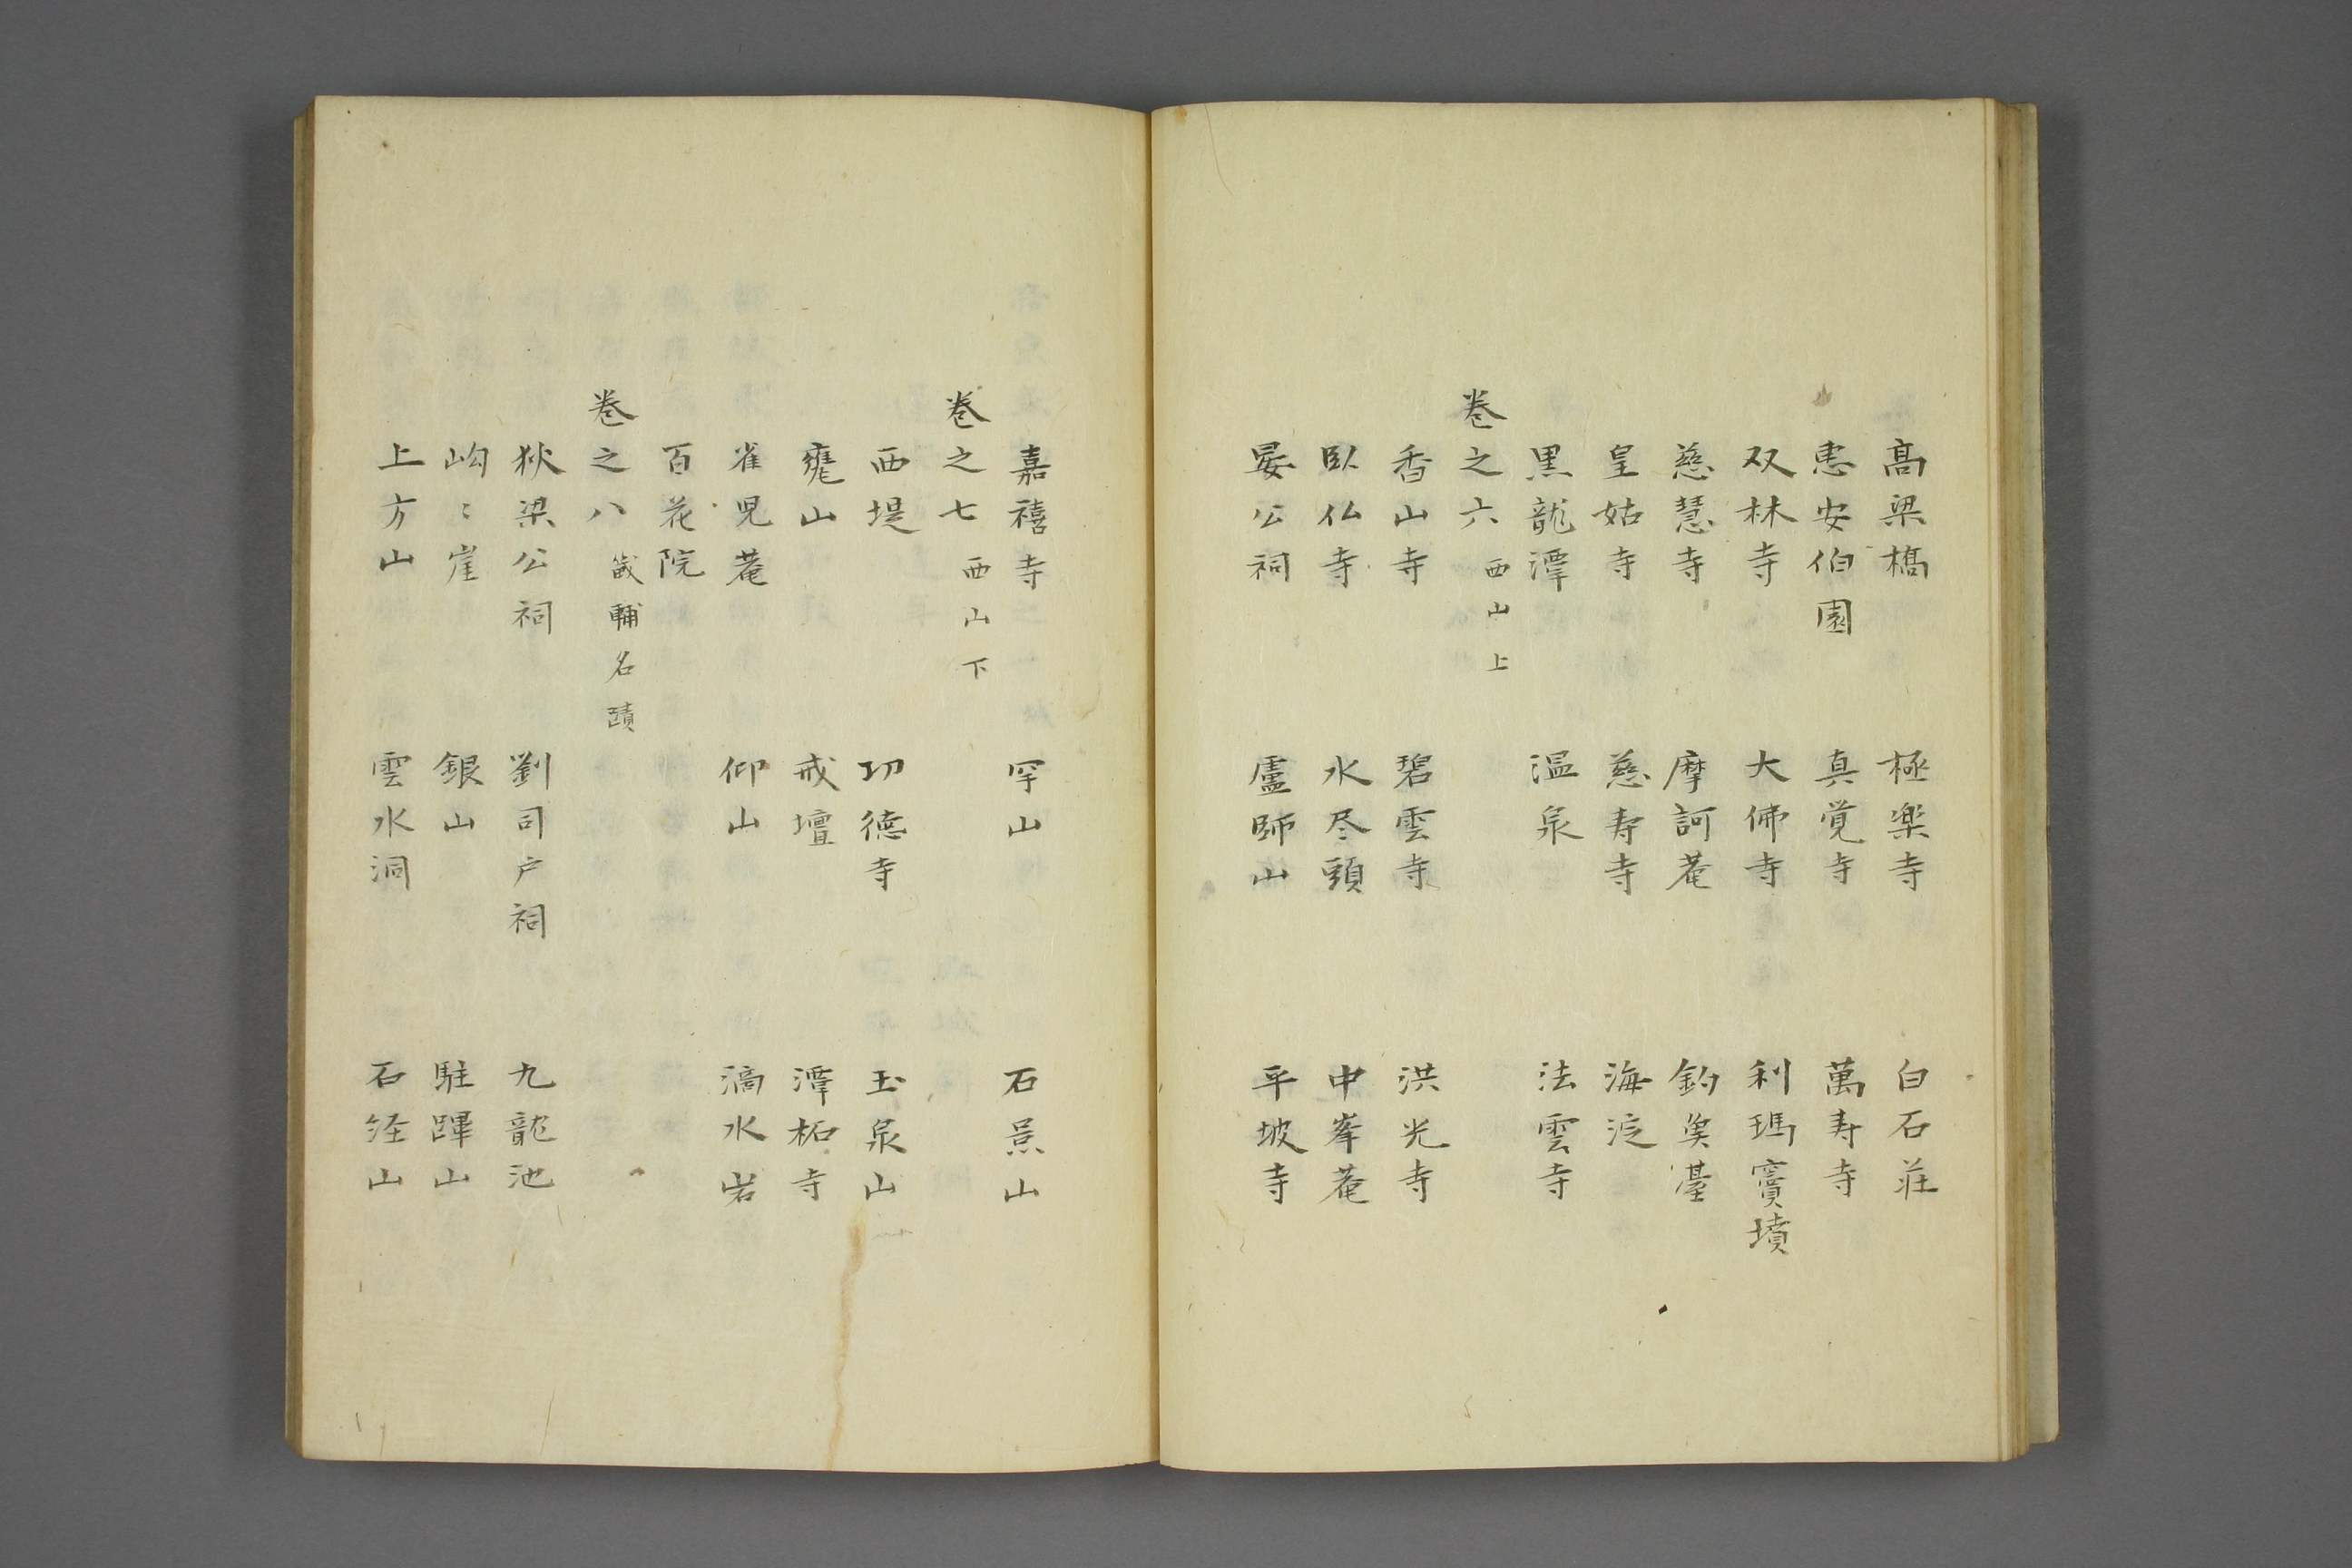 髙梁橋　極楽寺　白石莊
恵安伯園　真覚寺　萬寿寺
双林寺　大佛寺　利瑪竇墳
慈慧寺　摩訶菴　釣臺
皇姑寺　慈寿寺　海淀
黒龍潭　温泉　法雲寺
巻之六　西山上
香山寺　碧雲寺　洪光寺
臥仏寺　水尽頭　中峯菴
晏公祠　盧師山　平坡寺
嘉禧寺　罕山　石景山
巻之七　西山下
西堤　功徳寺　玉泉山
甕山　戒壇　潭柘寺
雀児菴　仰山　滴水岩
百花院
巻之八　畿輔名蹟
狄梁公祠　劉司户祠　九龍池
岣〻崖　銀山　駐蹕山
上方山　雲水洞　石経山